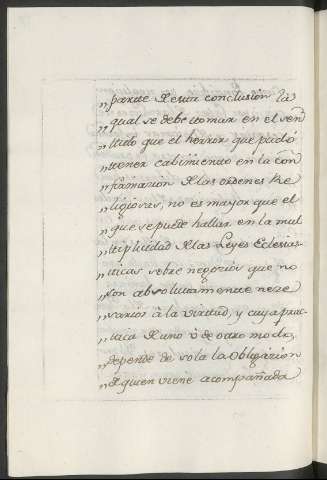 „parte de esta conclusión la
„qual se debe tomar en el sen
„tido que el herror que pudo
„tener cabimiento en la con
„firmazion de las ordenes Re
„ligiosas, no es mayor que el
„que se puede hallar en la mul
„tiplicidad de las Leyes Eclesias
„ticas sobre negozios que no
„son absolutamente neze
„sarios à la virtud, y cuya prac
„tica de uno ù de otro modo,
„depende de sola la obligazion
„de quien viene acompañada